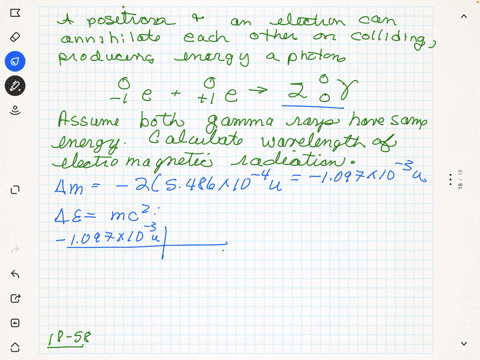 A positron & an electron can
annihilate each other on colliding,
producing energy a photon
⁰₋₁e + ⁰₊₁e → 2 ⁰₀γ
Assume both gamma rays have same
energy. Calculate wavelength of
electromagnetic radiation.
Δm = -2(5.486×10⁻⁴u = -1.097×10⁻³u
ΔE = mc²:
-1.097×10⁻³u
18-58